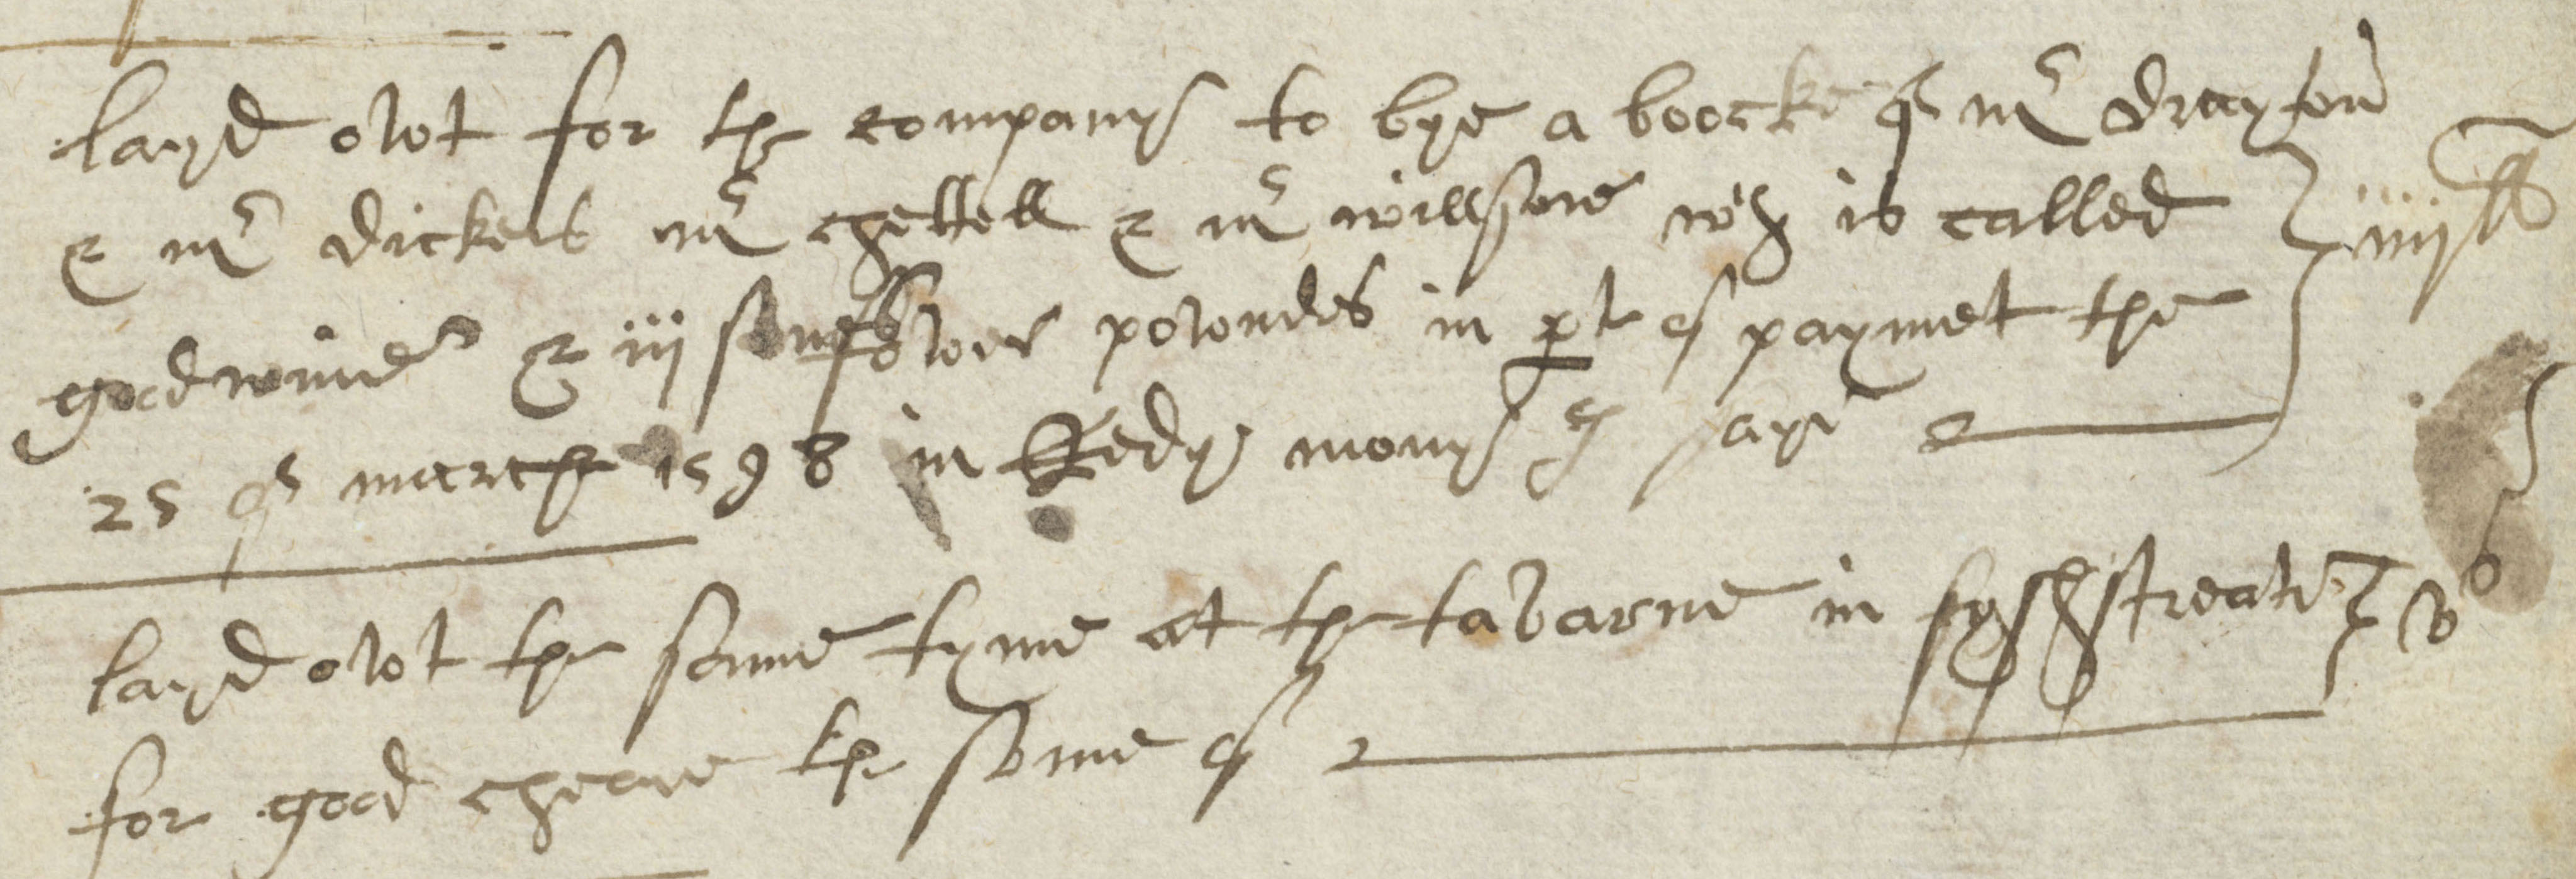 layd owt for the company to bye a boocke of mr drayton
& mr dickers mr chettell & mr willsone wch is called
goodwine & iij sones fower powndes in pt of paymet the iiijll
25 of march 1598 in Redy mony I saye
layd owt the same tyme at the tavarne in fyshstreate vs
for good cheare the some of